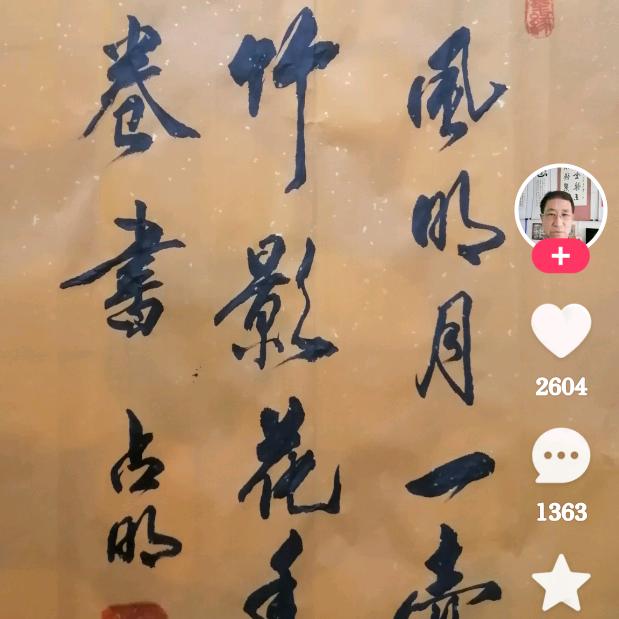 風明月一壺
竹影花香
卷書
占明
2604
1363